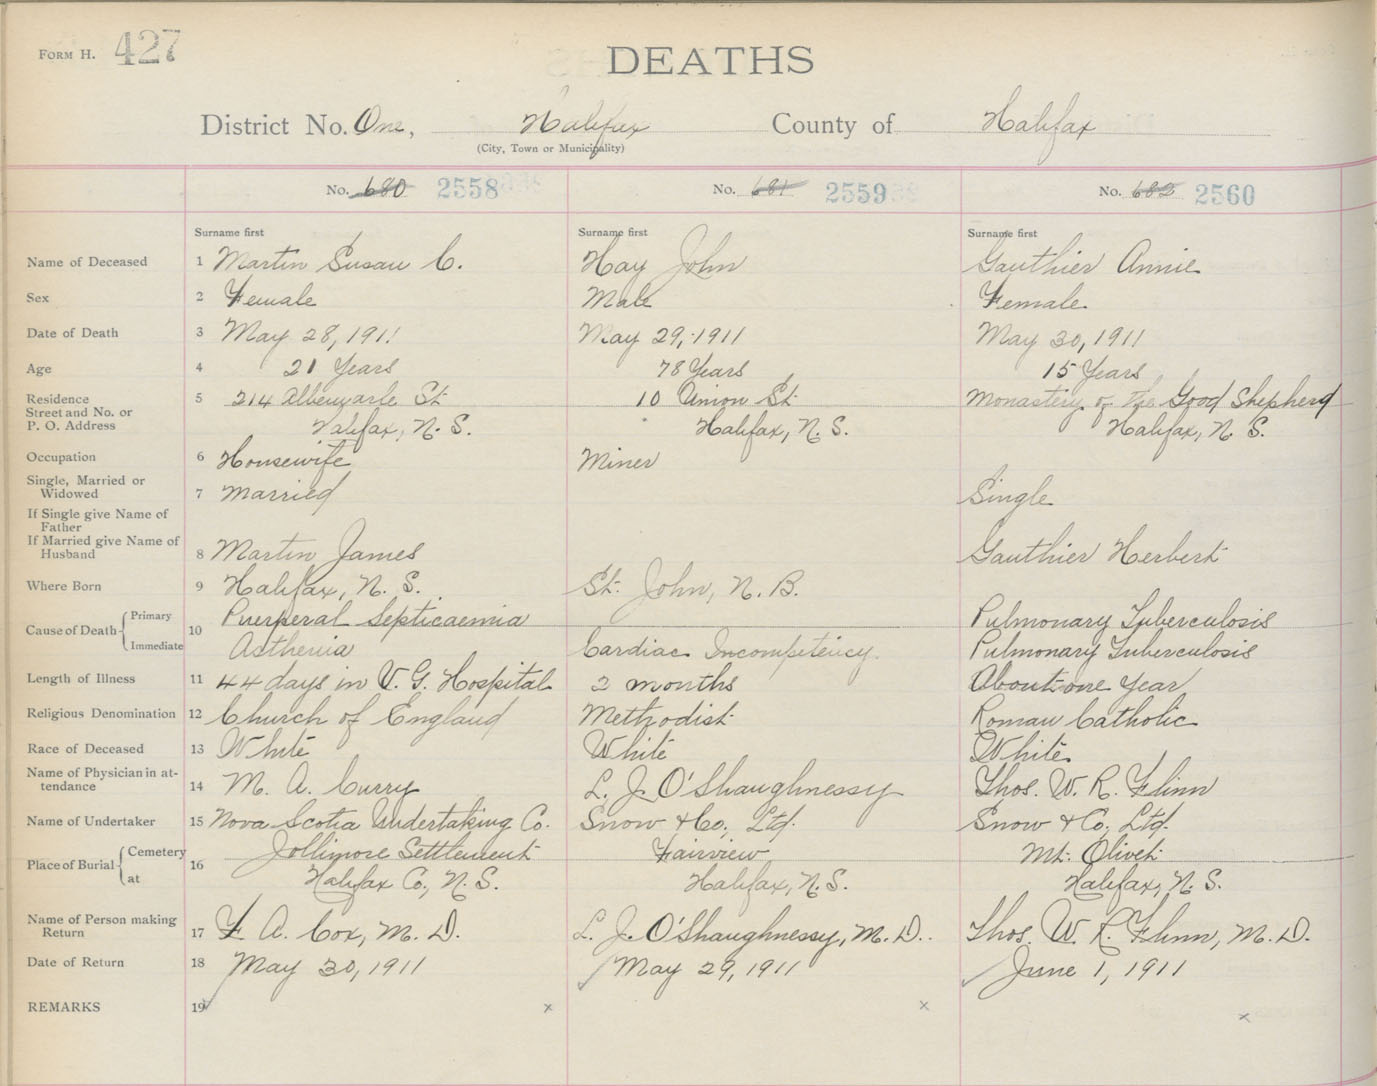 FORM H. 427
DEATHS
District No. One, Halifax County of Halifax
(City, Town or Municipality)
No. 680 2558 No. 681 2559 No. 682 2560
Surname first Surname first Surname first
Name of Deceased 1 Martin Susan C. Hay John Gauthier Annie
Sex 2 Female Male Female
Date of Death 3 May 28, 1911 May 29, 1911 May 30, 1911
Age 4 21 Years 78 Years 15 Years
Residence 5 214 Albermarle St. 10 Union St. Monastery of the Good Shepherd
Street and No. or
P. O. Address Halifax, N. S. Halifax, N. S. Halifax, N. S.
Occupation 6 Housewife Miner
Single, Married or
Widowed 7 Married Single
If Single give Name of
Father
If Married give Name of
Husband 8 Martin James Gauthier Herbert
Where Born 9 Halifax, N. S. St. John, N. B.
Cause of Death Primary 10 Puerperal Septicaemia Pulmonary Tuberculosis
Immediate Asthenia Cardiac Incompetency. Pulmonary Tuberculosis
Length of Illness 11 44 days in V. G. Hospital 2 months About one year
Religious Denomination 12 Church of England Methodist Roman Catholic
Race of Deceased 13 White White White
Name of Physician in at-
tendance 14 M. A. Curry L. J. O'Shaughnessy Thos. W. R. Flinn
Name of Undertaker 15 Nova Scotia Undertaking Co. Snow & Co., Ltd. Snow & Co. Ltd.
Place of Burial Cemetery 16 Jollimore Settlement Fairview Mt. Olivet
at Halifax Co., N. S. Halifax, N. S. Halifax, N. S.
Name of Person making
Return 17 F. A. Cox, M. D. L. J. O'Shaughnessy, M. D. Thos. W. R. Flinn, M. D.
Date of Return 18 May 30, 1911 May 29, 1911 June 1, 1911
REMARKS 19 x x x